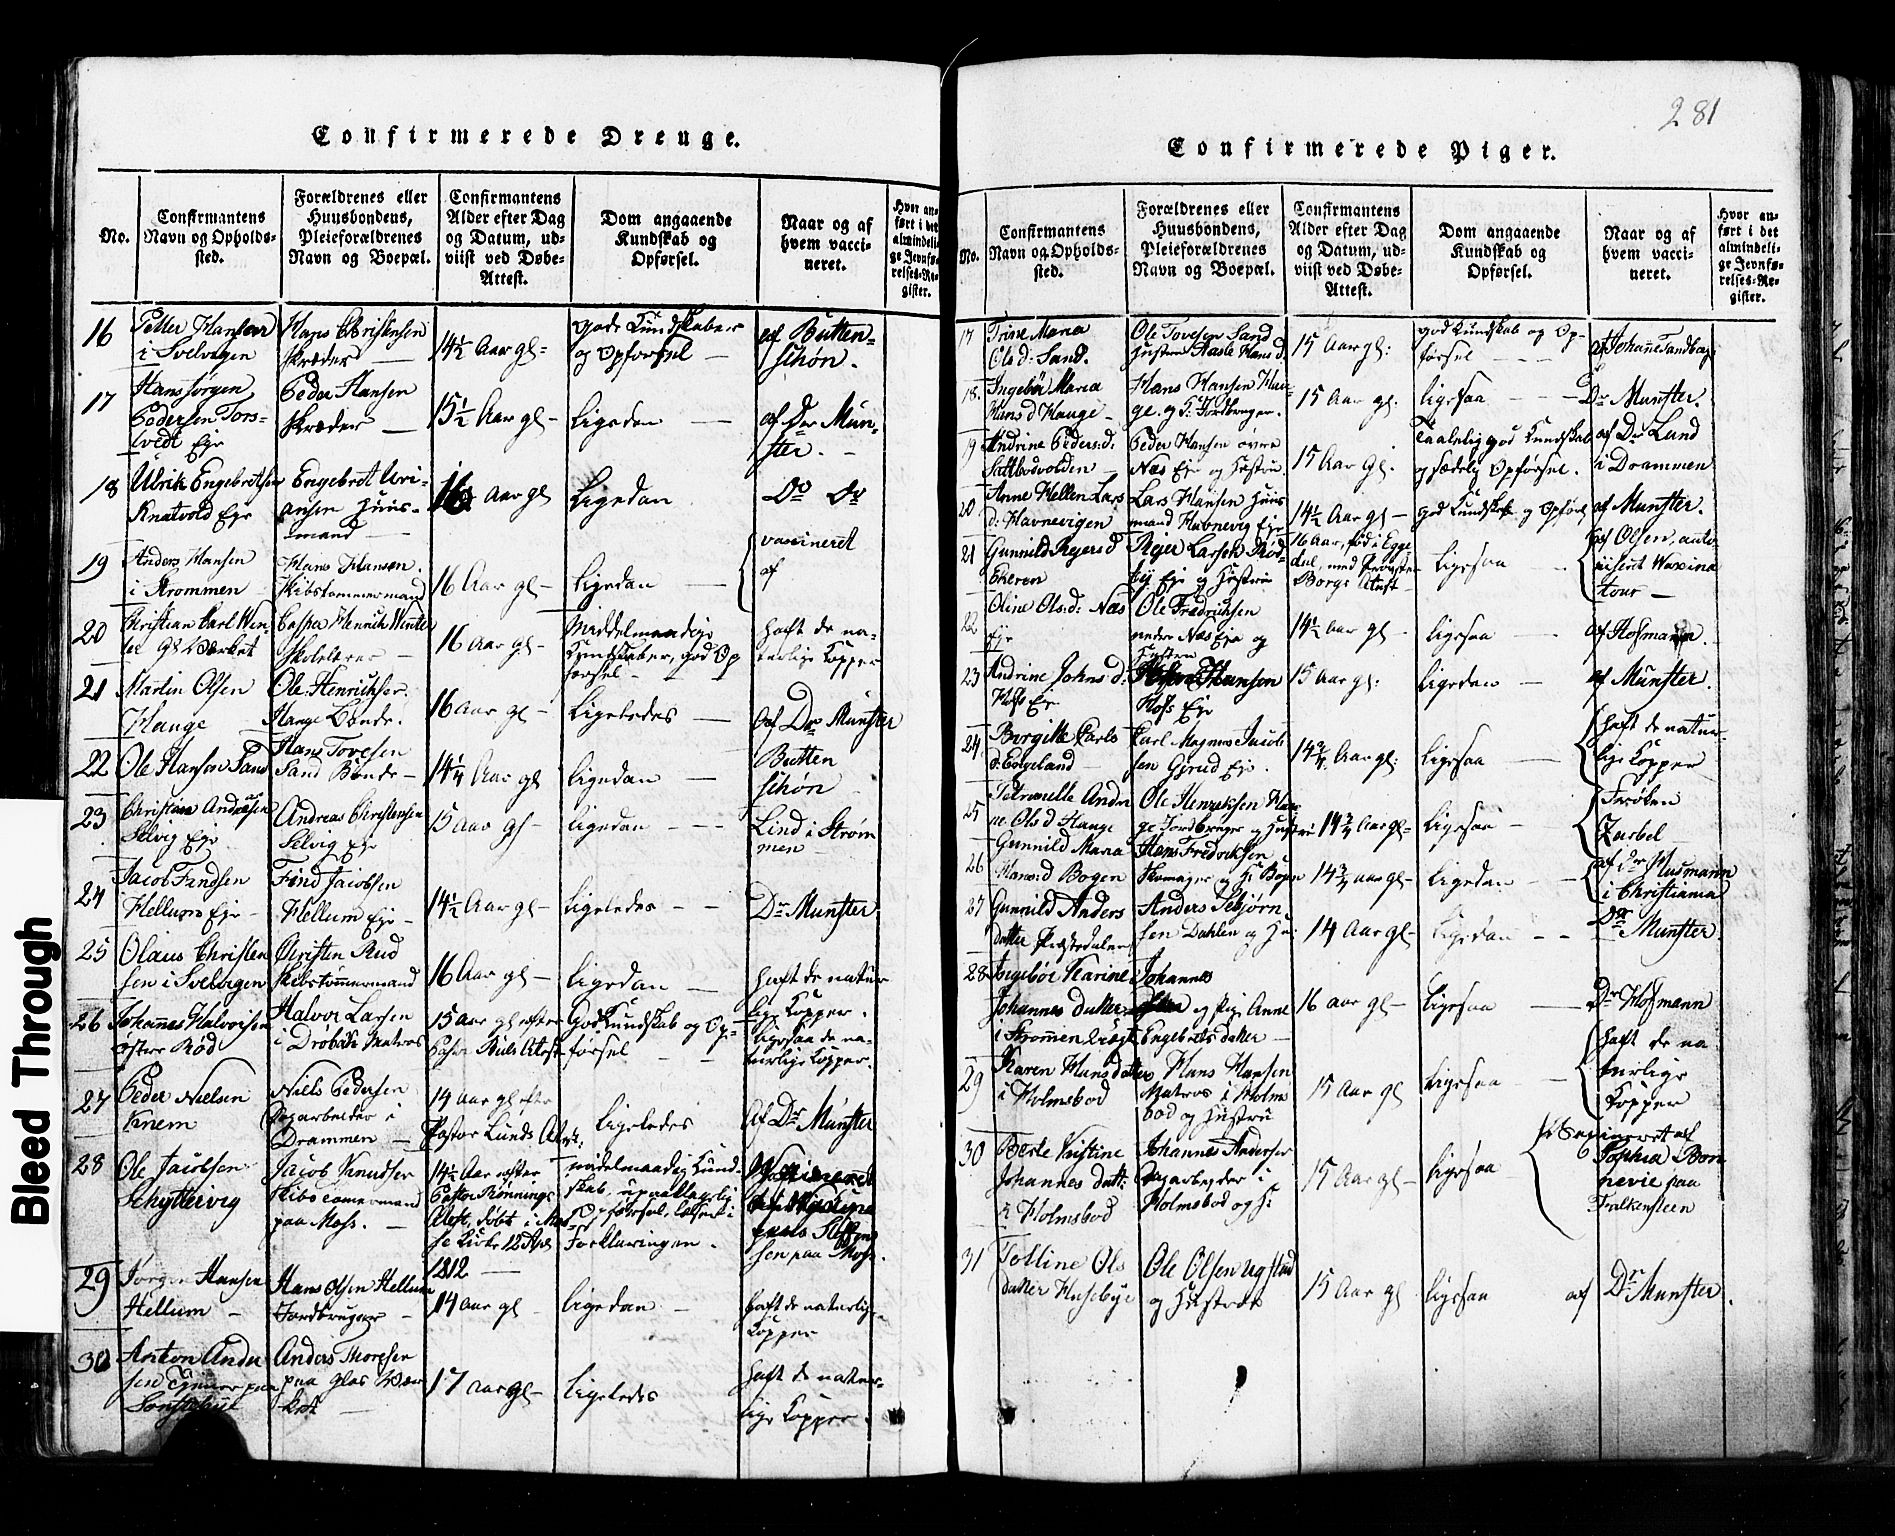 281
Confirmerede Drenge.
No.
Confirmantens
Navn og Opholds-
sted.
Forældrenes eller
Huusbondens,
Pleieforældrenes
Navn og Boepæl.
Confirmantens
Alder efter Dag
og Datum, ud-
viist ved Døbe-
Attest.
Dom angaaende
Kundskab og
Opførsel.
Naar og af
hvem vacci-
neret.
Hvor an-
ført i det
almindeli-
ge Jevnfø-
relses-Re-
gister.
16
Petter Hansen
i Svelvigen
Hans Christensen
Skræder
14½ Aar gl-
gode Kundskaber
og Opførsel
af Butten-
schøn.
17
Hans Jørgen
Pedersen Tors-
tvedt Eje
Peder Hansen
Skræder
15½ Aar gl
Ligedan
af Dr Mün-
ster.
18
Ulrik Engebretsen
Knatvold Eje
Engebret Uri-
ansen Huus-
mand
16 Aar gl
Ligedan
Do Do
19
Anders Hansen
i Strømmen
Hans Hansen
Skibstømmermand
16 Aar gl
Ligedan
vaccineret
af
20
Christian Carl Win-
ter Gl Værket
Casper Henrich Winter
Skolelærer
16 Aar gl
Middelmaadige
Kundskaber, god Op
førsel
haft de na-
turlige Kopper
21
Martin Olsen
Hauge
Ole Henriksen
Hauge Bonde.
16 Aar gl
Ligeledes
af Dr Munster
22
Ole Hansen Sand
Hans Tovesen
Sand Bonde
14¼ Aar gl
ligedan
Butten
schøn
23
Christian Andersen
Selvig Eje
Andreas Christensen
Selvig Eje
15 Aar gl
ligedan
Lind i Strøm
men
24
Jacob Findsen
Hellum Eje
Find Jacobsen
Hellum Eje
14½ Aar gl
ligeledes
Dr Munster
25
Olaus Christen
sen i Svelvigen
Christen Rud
Skibstømmermand
16 Aar gl
ligedan
haft de natur
lige Kopper.
26
Johannes Halvorsen
østre Rød
Halvor Larsen
i Drøbak Matros
15 Aar gl efter
Pastor Attest
God Kundskab og Op-
førsel
ligesaa de na-
turlige Kopper.
27
Peder Nielsen
Knem
Niels Pedersen
Drammen
14 Aar gl efter
Pastor Lunds Attest
ligeledes
Af Dr Münster
28
Ole Jacobsen
Schyttervig
Jacob Knudsen
Skibstømmermand
paa Moss.
14½ Aar efter
Pastor Rønnings
Attest, døbt i Mos-
se Kirke 12 Apr
1812
midelmaadig Kund-
skab, upaaklagelig
Opførsel, læsert i
Forklaringen.
Steffen
sen paa Moss.
29
Jørgen Hansen
Hellum
Hans Olsen Hellum
Jordbruger
14 aar gl
ligedan
haft de naturlig-
Kopper
30
Anton Ander
sen paa
Anders Thoresen
paa Glas Vær
ket
17 aar gl
ligeledes
haft de natur-
lige Kopper.
Confirmerede Piger.
No.
Confirmantens
Navn og Opholds-
sted.
Forældrenes eller
Huusbondens,
Pleieforældrenes
Navn og Boepæl.
Confirmantens
Alder efter Dag
og Datum, ud-
viist ved Døbe-
Attest.
Dom angaaende
Kundskab og
Opførsel.
Naar og af
hvem vacci-
neret.
Hvor an-
ført i det
almindeli-
ge Jevnfø-
relses-Re-
gister.
17
Trine Maria
Ols d: Sand.
Ole Tovesen Sand
Hustru Aasle Hans d.
15 Aar gl:
god Kundskab og Op-
førsel
af Johanne Sandberg
18.
Ingebor Maria
Hans d Hauge
Hans Hansen Hau-
ge. og H: Jordbruger.
15 Aar gl.
ligesaa
Dr Munster.
19
Andrine Peders: d:
Peder Hansen øvre
Næs Eje og Hustru
15 Aar gl.
Taalelig god Kundskab
og sædelig Opførsel.
af Dr Lund
i Drammen
20
Anne Hellen Lars
d. Havnevigen
Lars Hansen Huus
mand Havnevig Eje
14½ Aar gl
god Kundskab og Opførs
af Munster.
21
Gunnild Rejers d
Ekeren
Rejer Larsen Rød-
Eje og Hustru
16 Aar, fød i Egge
dal, med Provsten
Borgs Attest
ligesaa
af Olsen, auto
riseret Waxina
tour
22
Oline Ols: d: Næs
Eje
Ole Fredriksen
nedre Næs Eje og
Hustru
14½ Aar gl
ligesaa
af Hofmann.
23
Andrine Johns d:
Hofs Eje
Hansen
Hofs Eje
15 Aar gl:
ligedan
af Munster.
24
Borgitte Carls
d: Engeland
Carl Magnus Jacob
sen Gjerud Eje.
14¾ Aar gl:
ligesaa
haft de natur-
lige Kopper
25
Petronelle Andri
ne Ols d Hauge
Ole Henriksen Hau
ge Jordbruger og Hustru
14¾ Aar gl
ligesaa
Frøken
Zarbel
26
Gunnild Maria
Hans: d Bogen
Hans Fredriksen
Skomager og H: Bogen
14¾ aar gl
ligedan
af Dr Musmann
i Christiania
27
Gunnild Anders
datter Præstedalen
Anders Asbjørn
sen Dahlen og H:
14 Aar gl
ligedan
Dr Munster.
28
Ingebor Karine
Johannes datter
i Strømmen
Johannes
og Pige Anne
Engebrets datter
16 aar gl
ligesaa
Dr Hofmann
29
Karen Hans datter
i Holmsbod
Hans Hansen
Matros i Holms
bod og Hustru
15 aar gl
ligesaa
haft de na-
turlige
Kopper
30
Berte Kristine
Johannes datt:
i Holmsbod
Johannes Andersen
Holmsbod og H:
15 aar gl
ligesaa
Vaccineret af
Sophia Bon
nevie paa
Falkensteen
31
Tolline Ols
datter Husebye
Ole Olsen
og Hustrue
15 Aar gl
ligesaa
af Dr Munster.
Bleed Through